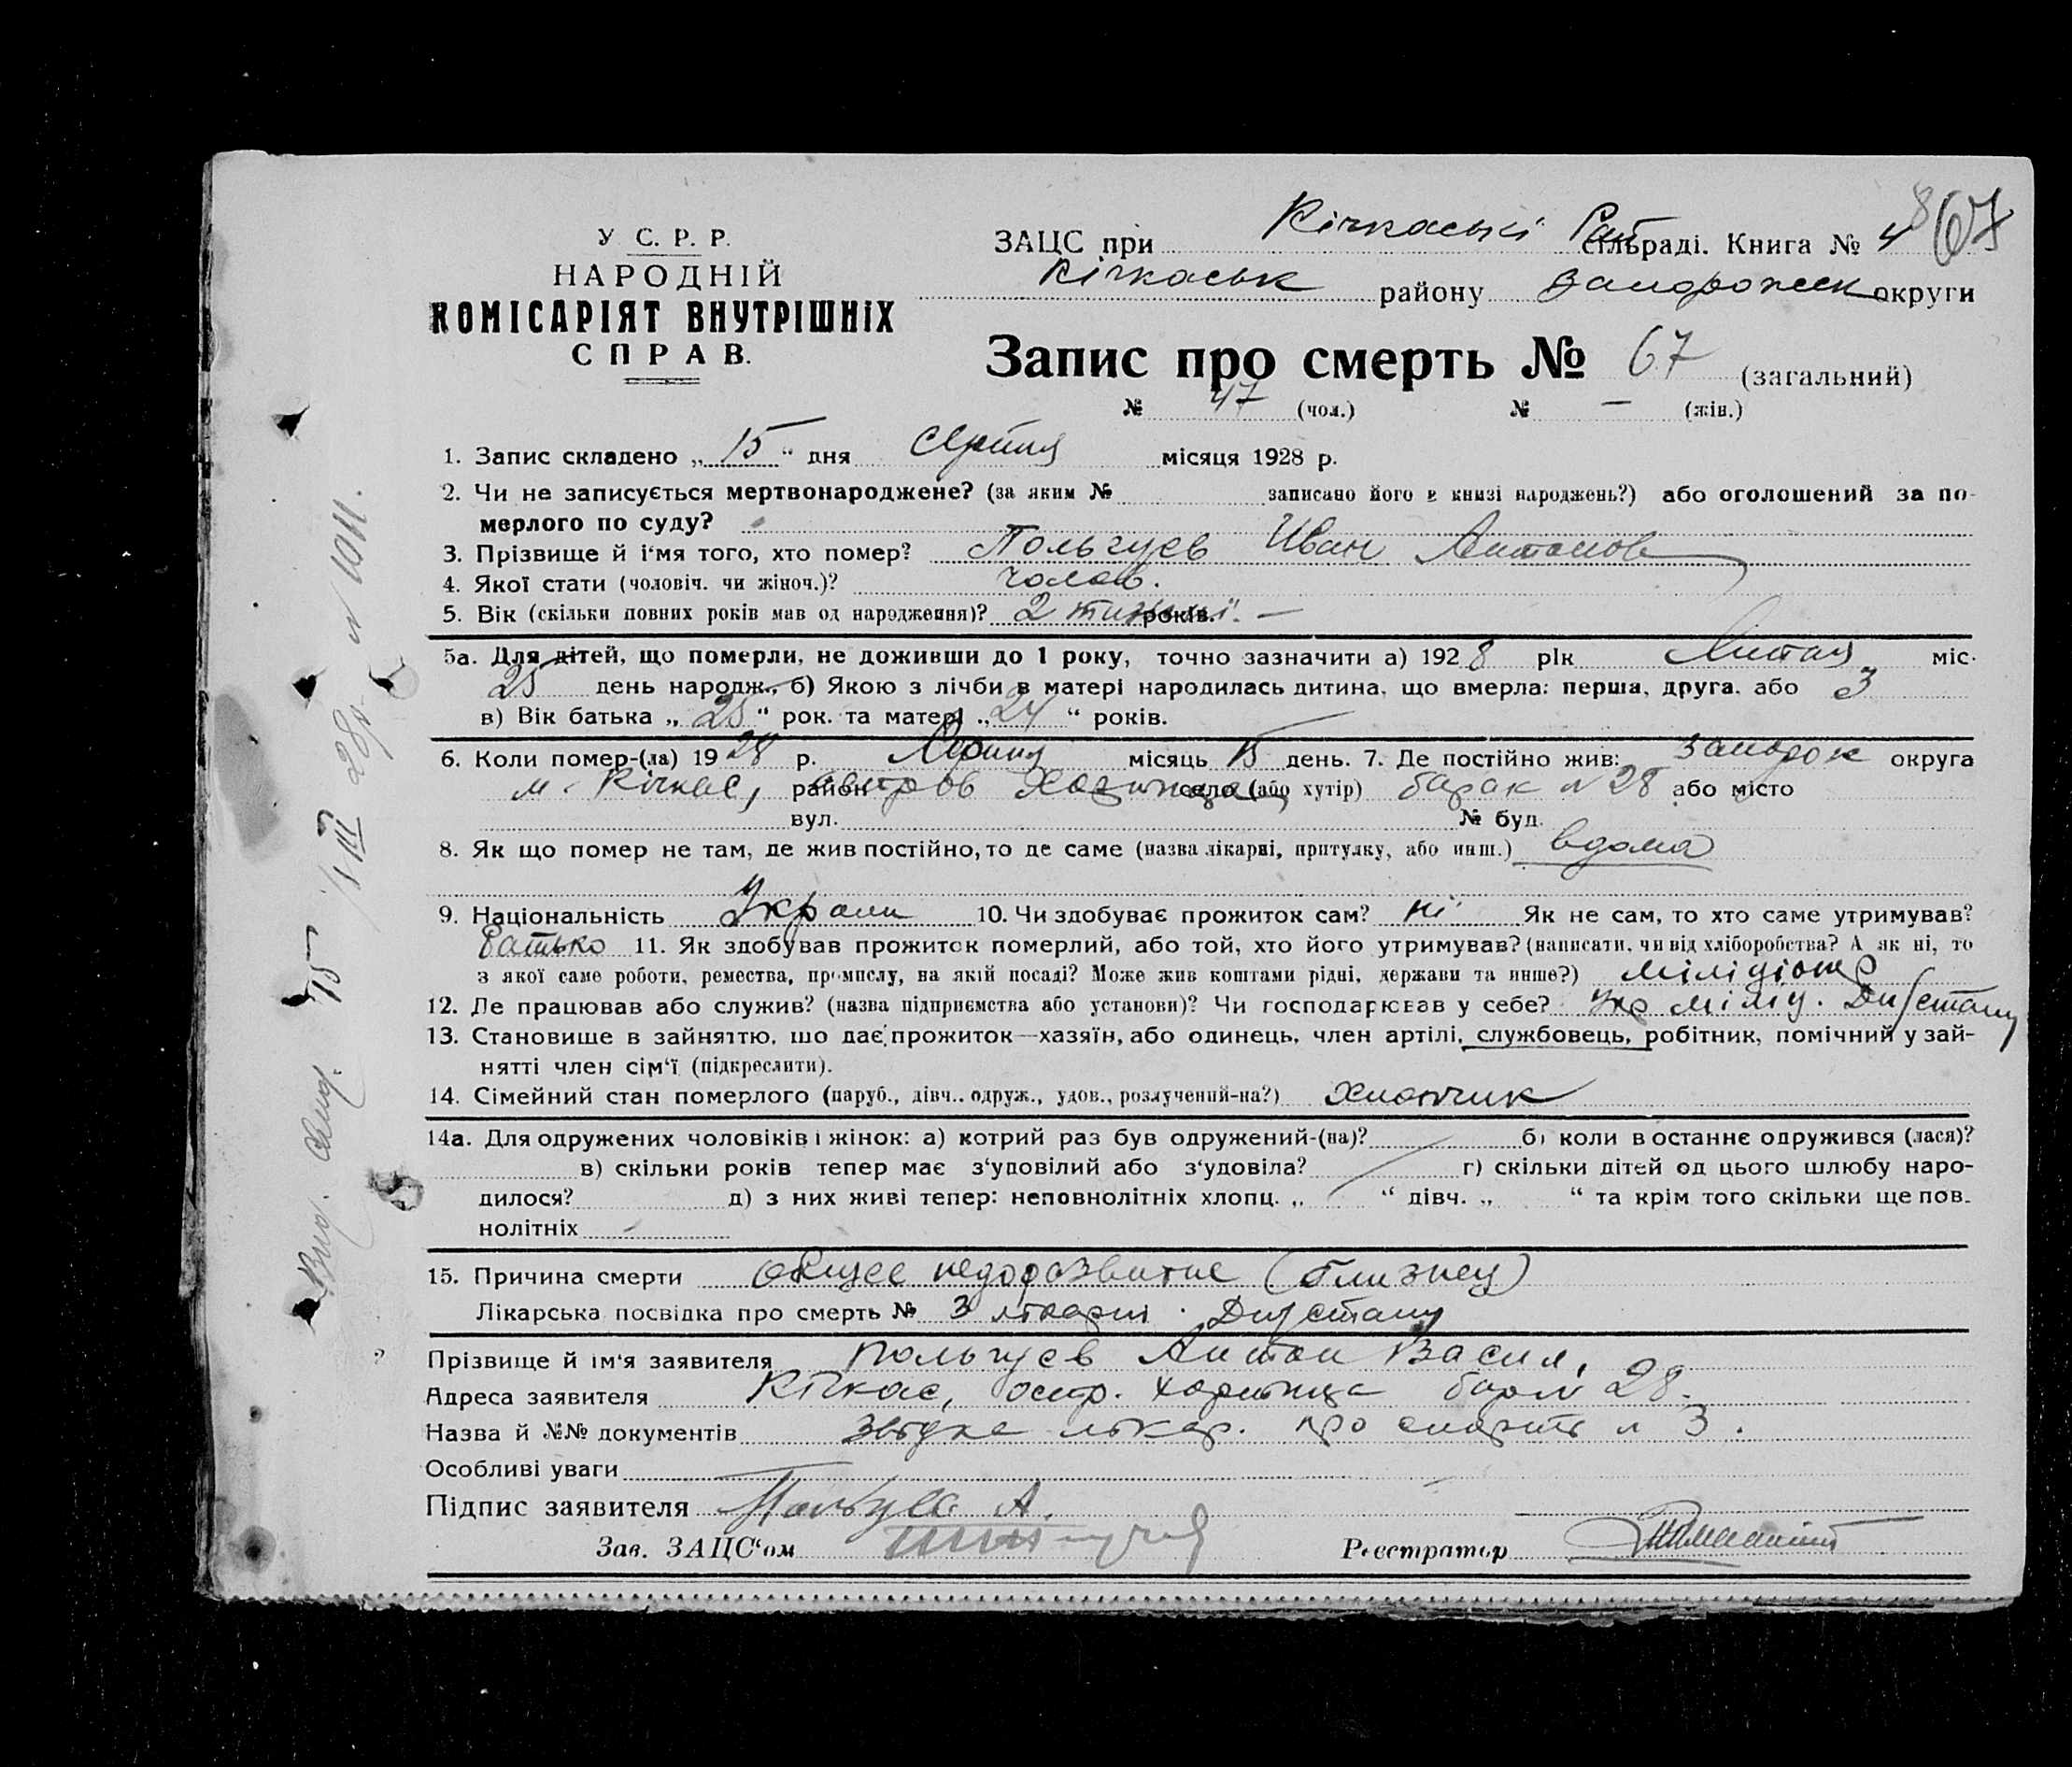 У С. Р. Р.
НАРОДНІЙ
КОМІСАРІЯТ ВНУТРІШНІХ
СПРАВ.
ЗАЦС при Кічкаські Рай сільраді. Книга № 4 67
Кічкаськ району Запорожськ округи
Запис про смерть № 67 (загальний)
№ 47 (чол.) № — (жін.)
1. Запис складено „ 15 “ дня Серпня місяця 1928 р.
2. Чи не записується мертвонароджене? (за яким № записано його в книзі народжень?) або оголошений за по-
мерлого по суду?
3. Прізвище й і‘мя того, хто помер? Польгуев Иван Антонов
4. Якої стати (чоловіч. чи жіноч.)? чолов.
5. Вік (скільки повних років мав од народження)? 2 тижні років. —
5а. Для дітей, що померли, не доживши до 1 року, точно зазначити а) 1928 рік Липня міс.
25 день народж., б) Якою з лічби в матері народилась дитина, що вмерла: перша, друга, або 3
в) Вік батька „ 25 “ рок. та матері „ 24 “ років.
6. Коли помер-(ла) 1928 р. Серпня місяць 15 день. 7. Де постійно жив: Запорож округа
м. Кічкас, район остров Хортица село (або хутір) барак № 28 або місто
вул. № буд.
8. Як що помер не там, де жив постійно, то де саме (назва лікарні, притулку, або инш.) вдома
9. Національність Україн 10. Чи здобуває прожиток сам? ні Як не сам, то хто саме утримував?
Батько 11. Як здобував прожиток померлий, або той, хто його утримував? (написати, чи від хліборобства? А як ні, то
з якої саме роботи, ремества, промислу, на якій посаді? Може жив коштами рідні, держави та инше?) міліціонер
12. Де працював або служив? (назва підприємства або установи)? Чи господарював у себе? Упр міліц. Дн/стану
13. Становище в зайняттю, що дає прожиток—хазяїн, або одинець, член артілі, службовець, робітник, помічний у зай-
нятті член сім‘ї (підкреслити).
14. Сімейний стан померлого (паруб., дівч., одруж., удов., розлучений-на?) хлопчик
14а. Для одружених чоловіків і жінок: а) котрий раз був одружений-(на)? б) коли востаннє одружився (лася)?
в) скільки років тепер має з‘удовілий або з‘удовіла? г) скільки дітей од цього шлюбу наро-
дилося? д) з них живі тепер: неповнолітніх хлопц. „ “ дівч. „ “ та крім того скільки ще пов-
нолітніх
15. Причина смерти общее недоразвитие (близнец)
Лікарська посвідка про смерть № 3 лікарні Дн/стану
Прізвище й ім‘я заявителя Польгуев Антон Васил.
Адреса заявителя Кічкас, остр. Хортица бар № 28.
Назва й №№ документів звідка лікар. про смерть № 3.
Особливі уваги
Підпис заявителя Польгуев А.
Зав. ЗАЦС‘ом
Реєстратор